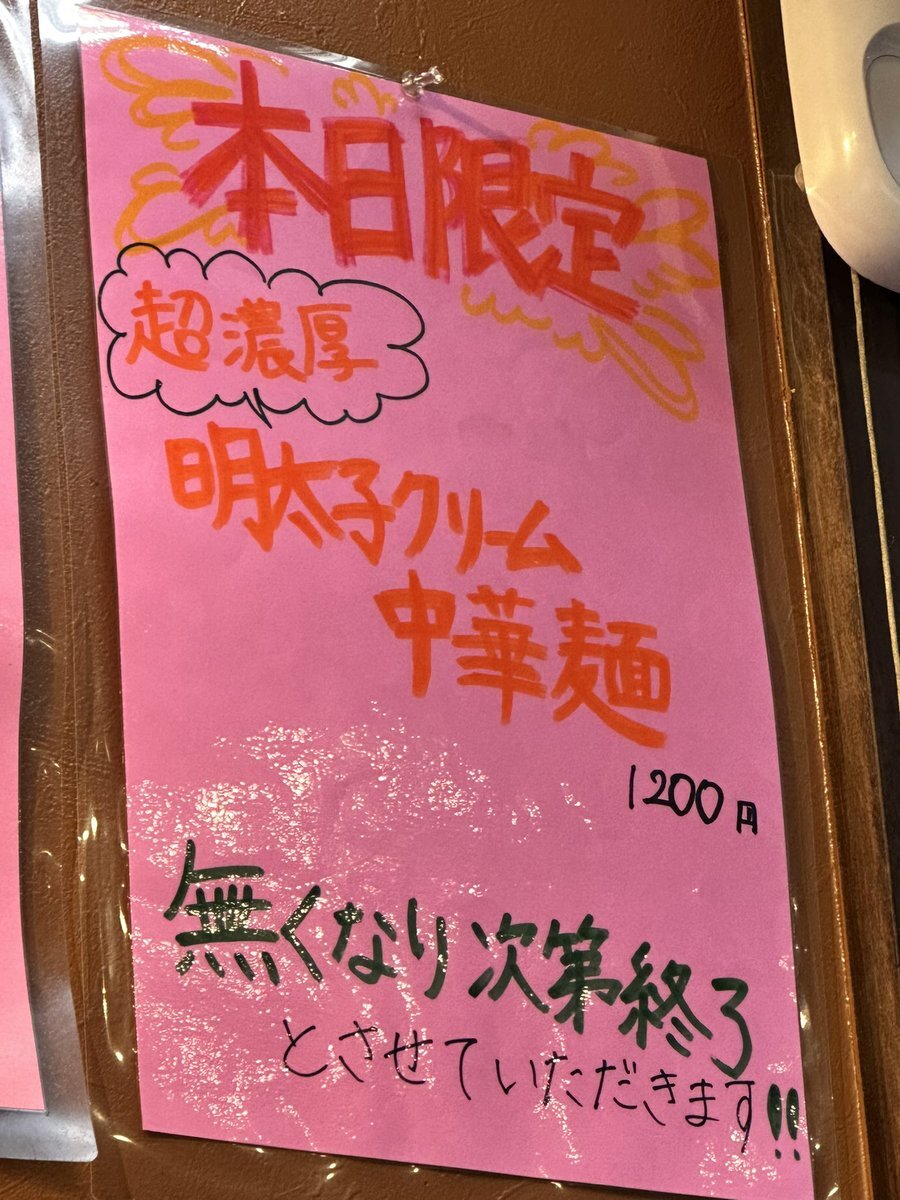 本日限定
超濃厚
明太子クリーム
中華麺
1200円
無くなり次第終了
とさせていただきます!!